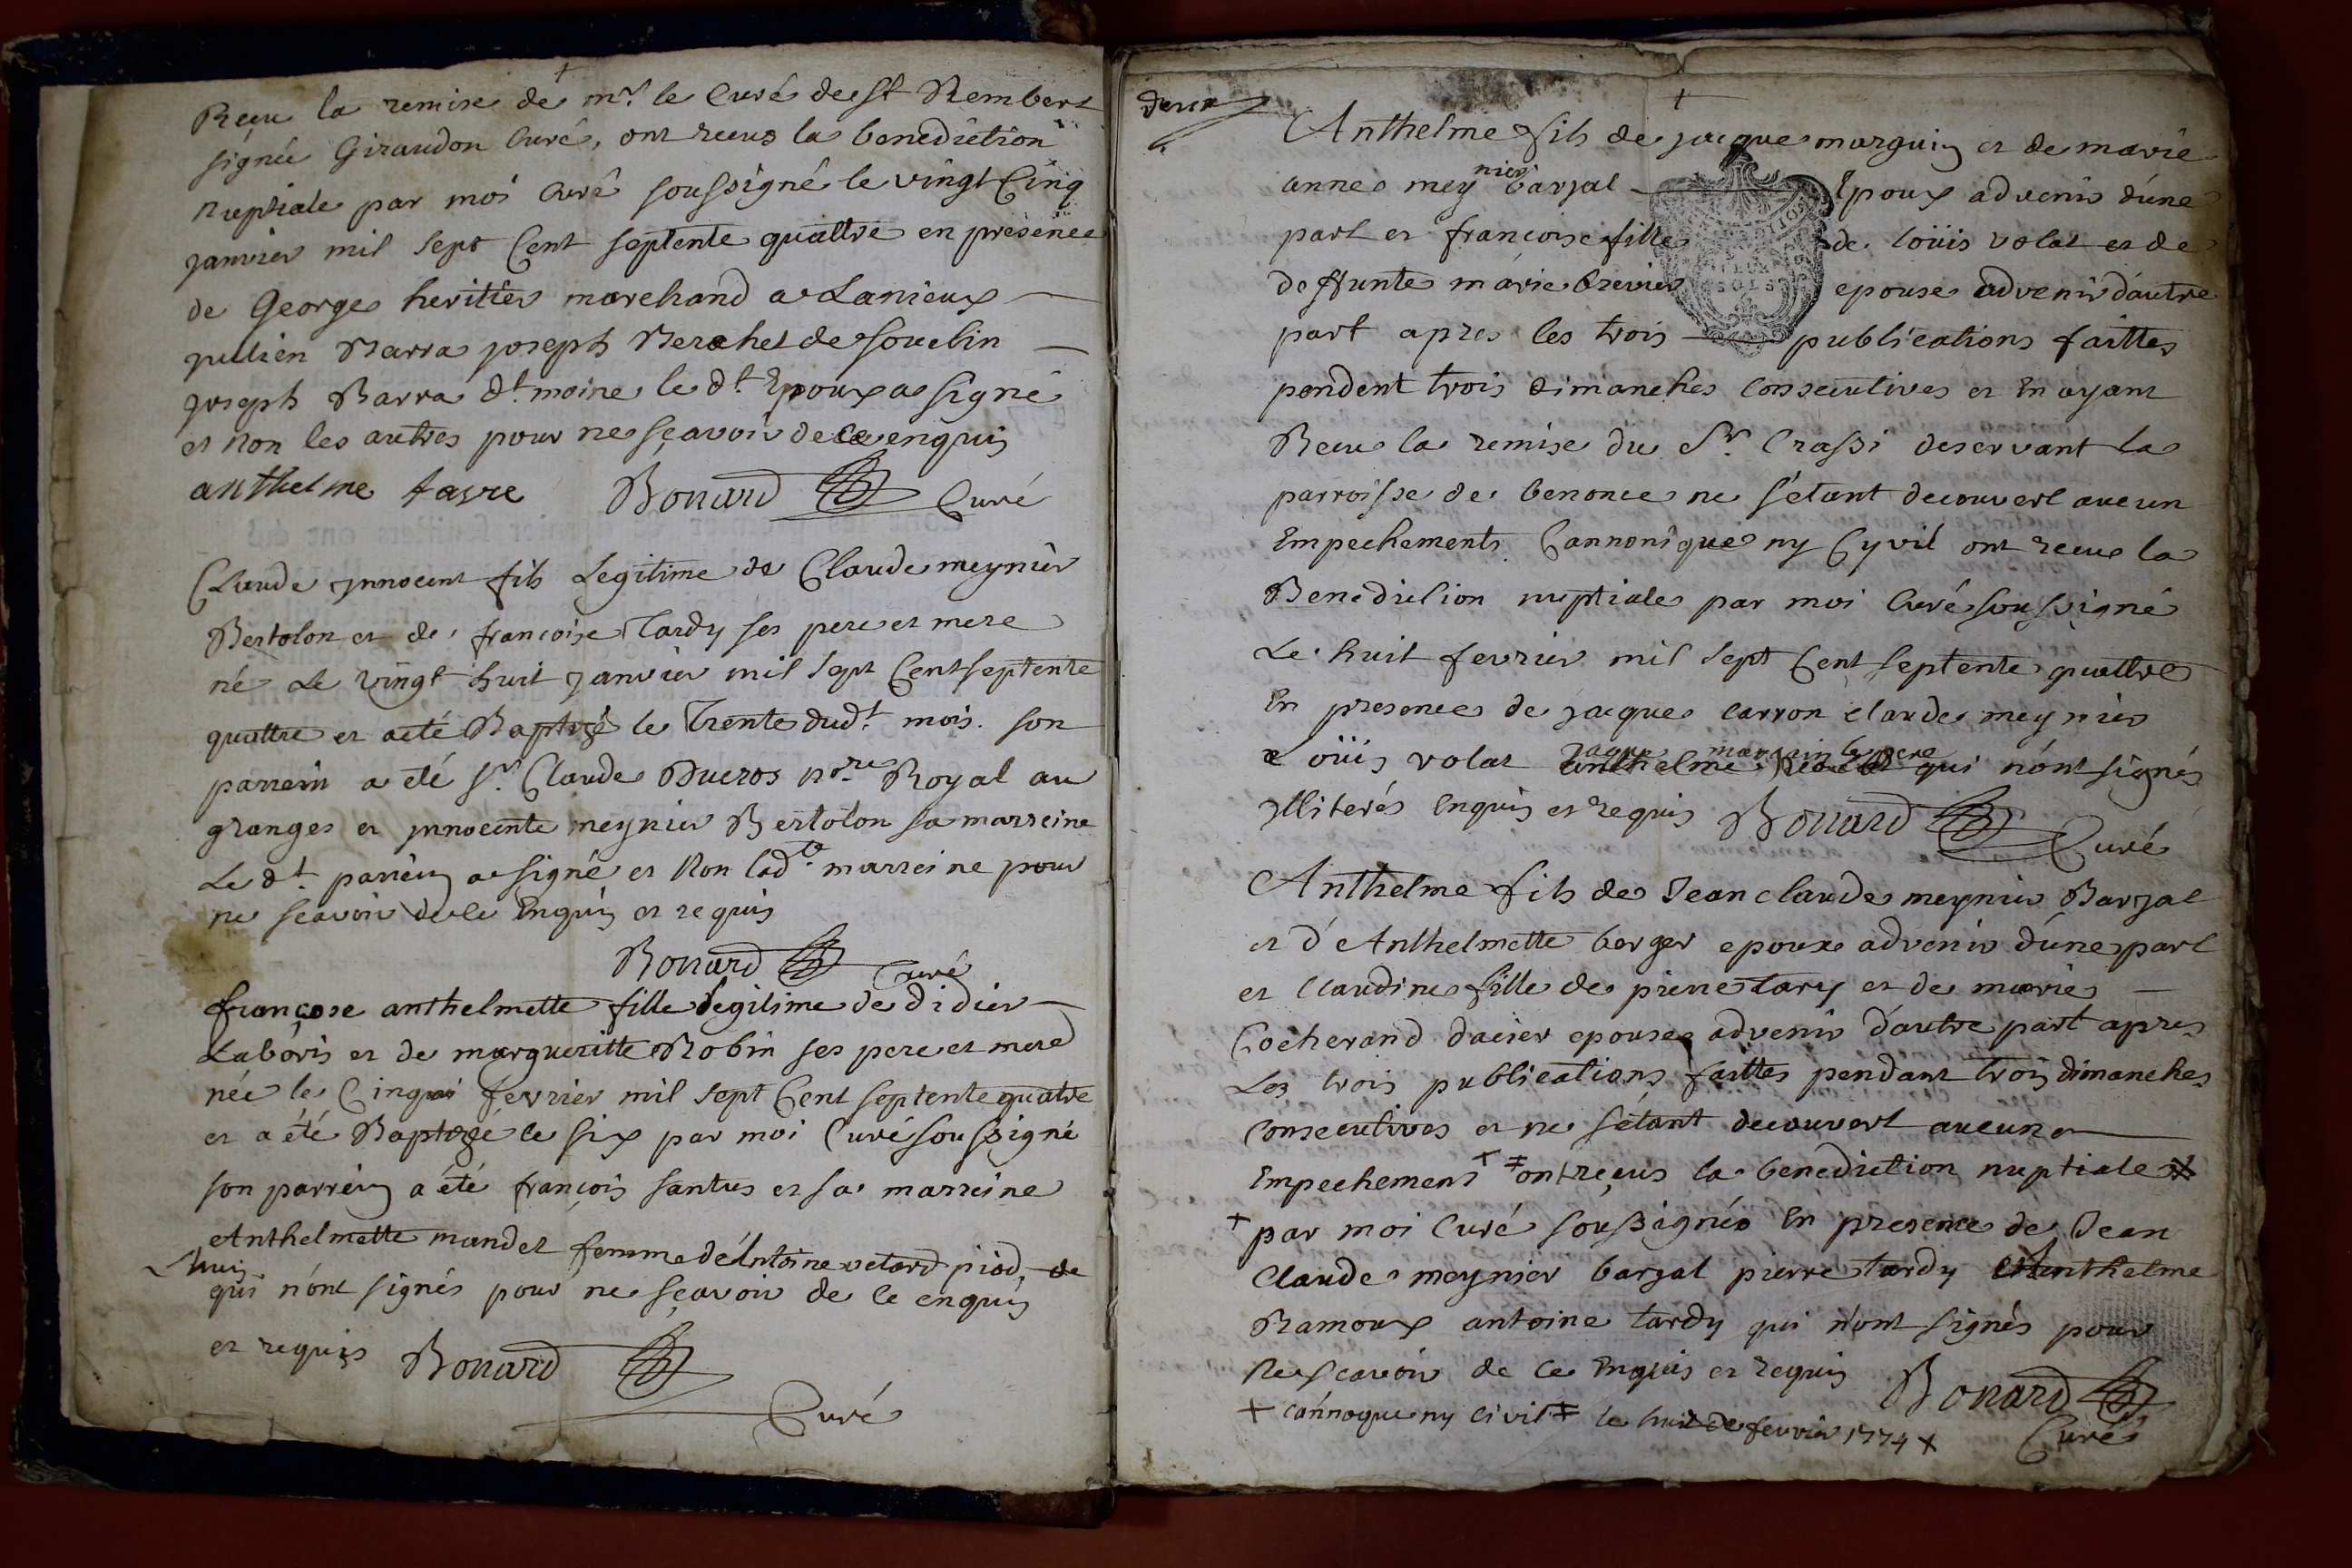 Reçu la remise de mr. le Curé de st Rembert
signée Giraudon Curé, ont recus la benediction
nuptiale par moi curé soussigné le vingt Cinq
janvier mil sept Cent septente quattre en présence
de George heritier marchand a Lanieux
julien Barra joseph Berchet de souclin
joseph Barra dt. moine le dt. Epoux a signé
et non les autres pour ne sçavoir de ce enquis
anthelme favre Bonard Curé
Claude ynnocent fils Legitime de Claude meynier
Bertolon et de françoise Tardy ses pere et mere
né Le vingt huit janvier mil sept Cent septente
quattre et a eté Baptizé le Trente dudt. mois. son
parrein a eté sr. Claude Ducros nore Royal au
granges et ynnocente meynier Bertolon sa marreine
Le dt. parrein a signé et Non ladte. marreine pour
ne scavoir de ce Enquis et requis
Bonard Curé
françoise anthelmette fille legitime de didier
Laboris et de margueritte Robin ses pere et mere
née le Cinq fevrier mil sept Cent septente quatre
et a été Baptizé le six par moi Curé soussigné
son parrein a été françois santus et sa marreine
Anthelmette mandet femme d'Antoine vetard piod, de
qui n'ont signés pour ne sçavoir de ce enquis
et requis Bonard
Curé
deux
Anthelme fils de jacque marguin et de marie
anne meynier barjal Epoux advenir d'une
part et francoise fille de Loüis volat et de
deffunte marie brevier epouse advenir d'autre
part apres les trois publications faittes
pendent trois dimanches consecutives et En ayant
Recu la remise du Sr. Crassi deservant la
parroisse de benonce ne s'étant decouvert aucun
Empechements Cannonique ny Cyvil ont recus la
Benediction nuptiale par moi Curé soussigné
Le huit fevrier mil sept Cent septente quattre
En presence de jacque carron claude meynier
Loüis volat jaque marguin le pere qui n'ont signés
jlliterés Enquis et requis Bonard
Curé
Anthelme fils de Jean claude meynier Barjal
et d'Anthelmette berger epoux advenir d'une part
et Claudine fille de pierre tary et de marie
Cocherand dacier epouse advenir d'autre part apres
Les trois publications faittes pendant trois dimanches
consecutives et ne s'étant decouvert aucun
Empechement + ‡ ont reçus la benediction nuptiale
+ par moi Curé soussignés En presence de Jean
Claude meynier barjal pierre tardy Anthelme
Ramoux antoine tardy qui n'ont signés pour
ne scavoir de ce Enquis et requis Bonard
+ cannoque ny civil ‡ le huit de fevrier 1774 + Curé